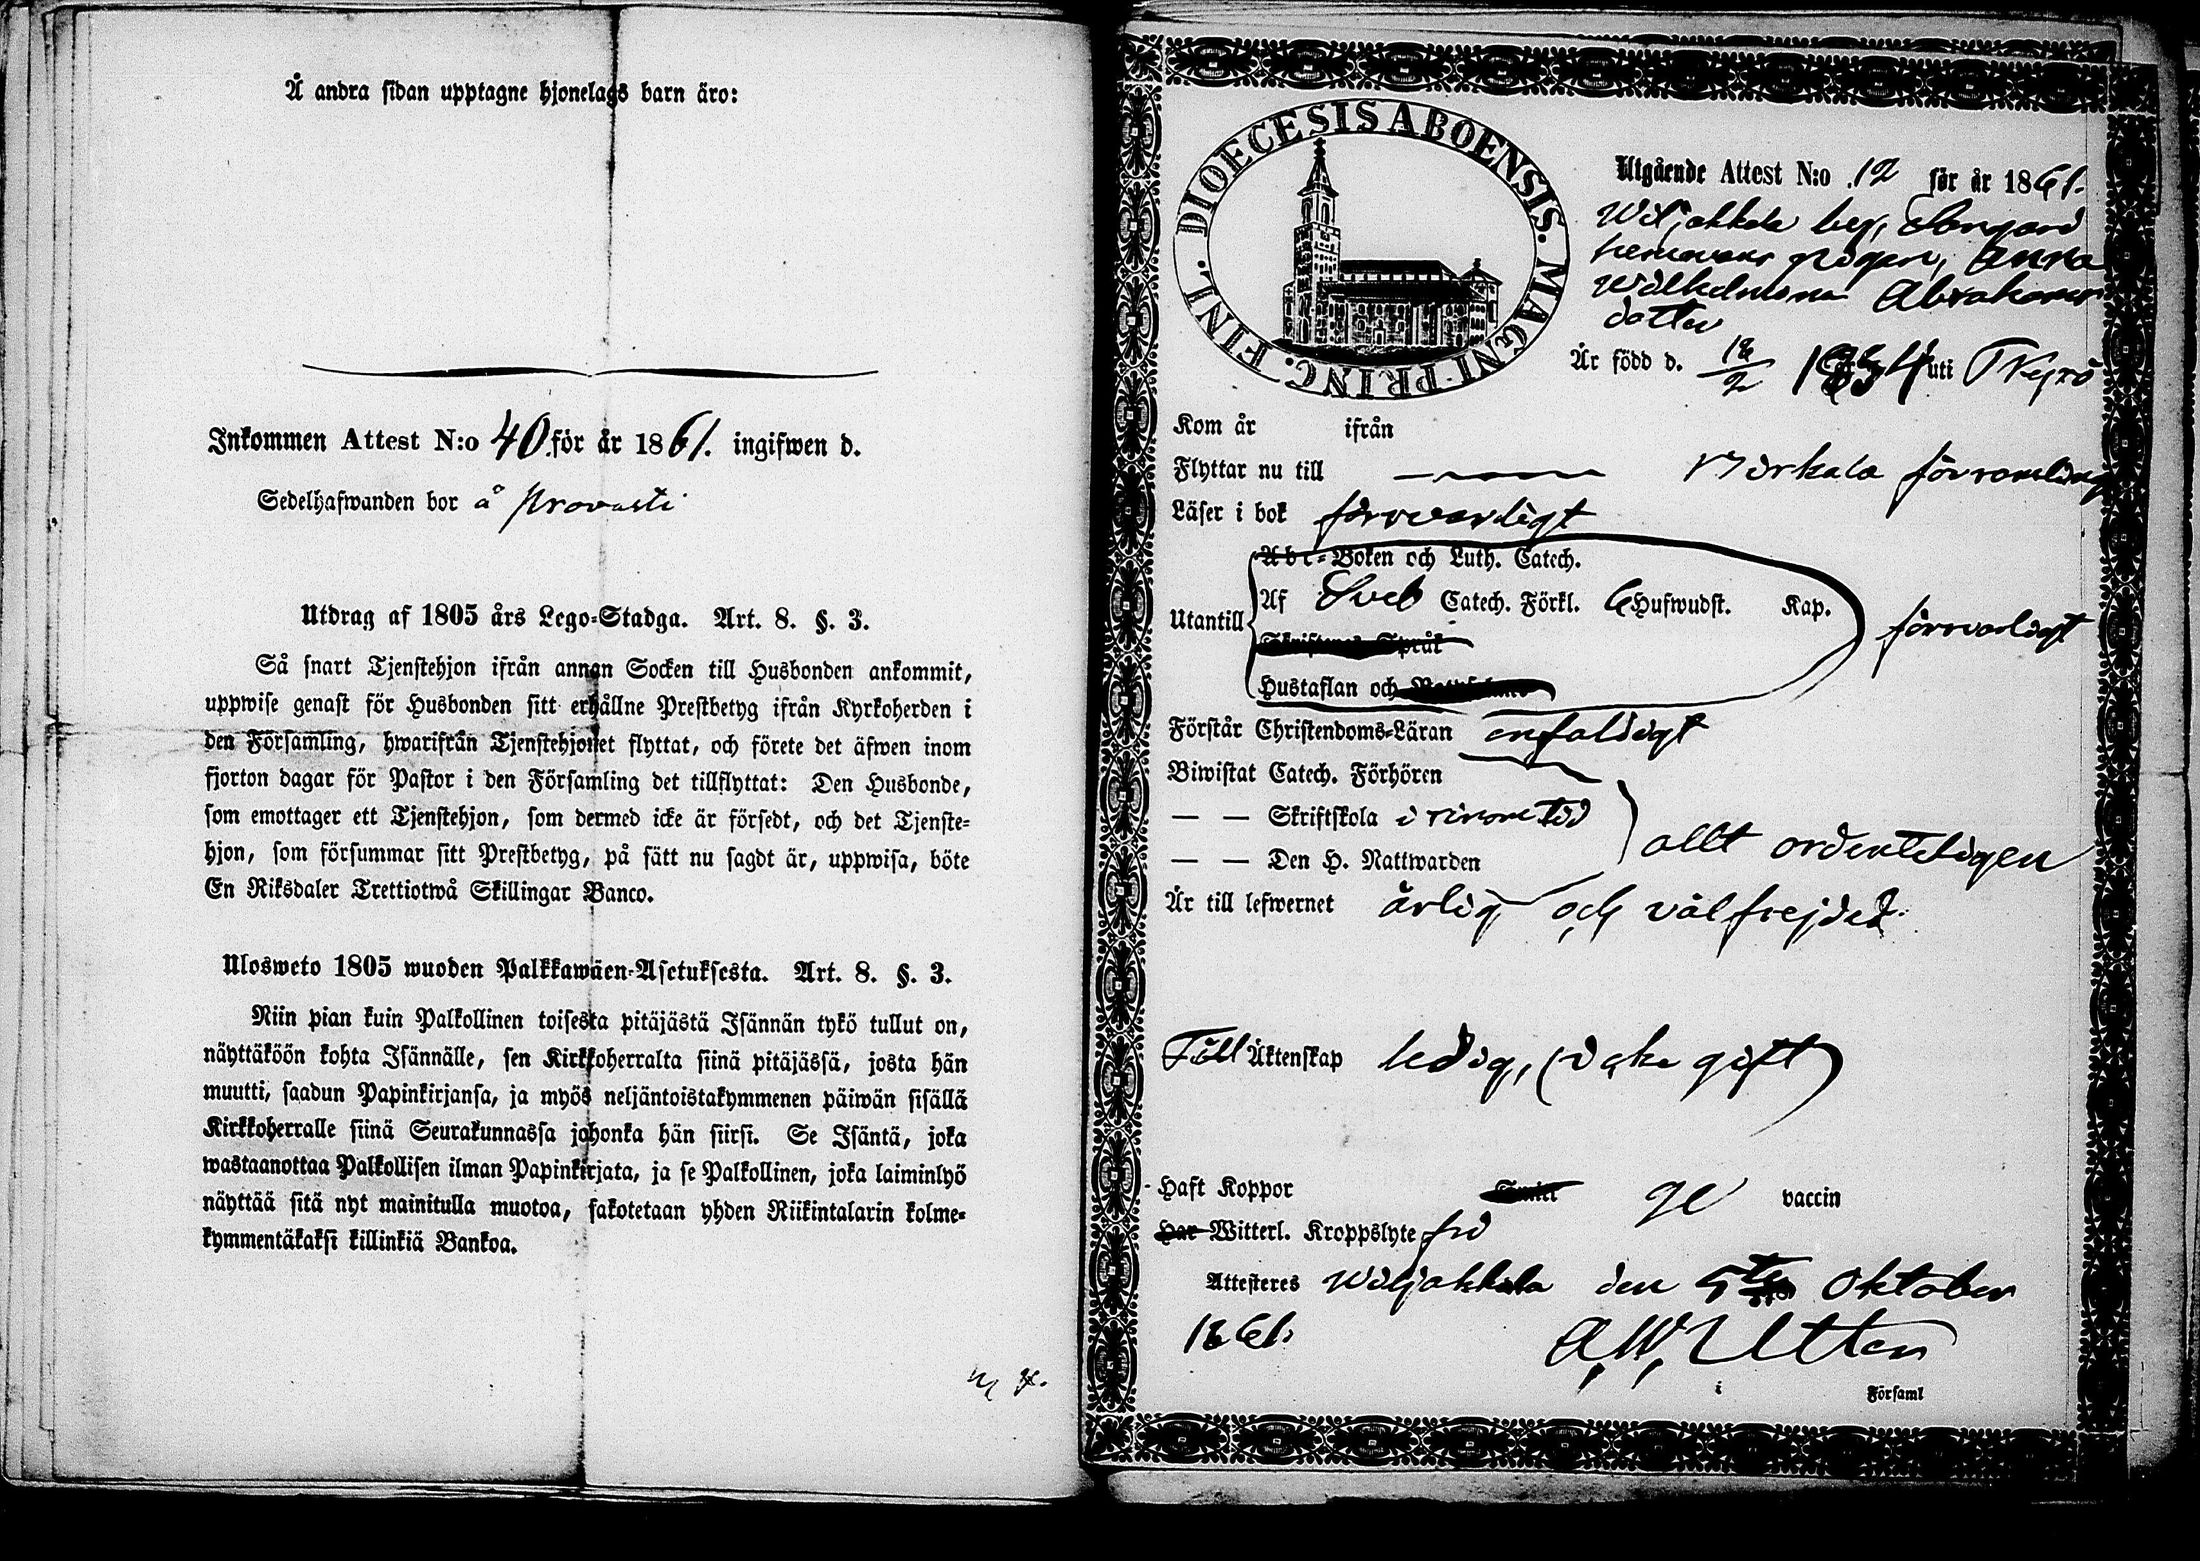 Å andra sidan upptagne hjonelags barn äro:
Inkommen Attest N:o 40. för år 1861. ingifwen d.
Sedelhafwanden bor å Provasti
Utdrag af 1805 års Lego-Stadga. Art. 8. §. 3.
Så snart Tjenstehjon ifrån annan Socken till Husbonden ankommit,
uppwise genast för Husbonden sitt erhållne Prestbetyg ifrån Kyrkoherden i
den Församling, hwarifrån Tjenstehjonet flyttat, och förete det äfwen inom
fjorton dagar för Pastor i den Församling det tillflyttat: Den Husbonde,
som emottager ett Tjenstehjon, som dermed icke är försedt, och det Tjenste-
hjon, som försummar sitt Prestbetyg, på sätt nu sagdt är, uppwisa, böte
En Riksdaler Trettiotwå Skillingar Banco.
Ulosweto 1805 wuoden Palkkawäen-Asetuksesta. Art. 8. §. 3.
Niin pian kuin Palkollinen toisesta pitäjästä Isännän tykö tullut on,
näyttäköön kohta Isännälle, sen Kirkkoherralta siinä pitäjässä, josta hän
muutti, saadun Papinkirjansa, ja myös neljäntoistakymmenen päiwän sisällä
Kirkkoherralle siinä Seurakunnassa johonka hän siirsi. Se Isäntä, joka
wastaanottaa Palkollisen ilman Papinkirjata, ja se Palkollinen, joka laiminlyö
näyttää sitä nyt mainitulla muotoa, sakotetaan yhden Riikintalarin kolme-
kymmentäkaksi killinkiä Bankoa.
DIOECESIS ABOENSIS. MAGNI PRINC. FINL.
Utgående Attest N:o 12 för år 1861.
Wiljakkala by,
pigan, Anna
Wilhelmina Abrahams
dotter
Är född d. 18/2 1834 uti TKyrö
Kom år ifrån
Flyttar nu till Birkala församling
Läser i bok försvarligt
Abc-Boken och Luth. Catech.
Utantill Af Sveb Catech. Förkl. 6 Hufwudst. Kap. försvarligt
Skriftenes Språk
Hustaflan och
Förstår Christendoms-Läran enfaldigt
Biwistat Catech. Förhören
— — Skriftskola i sinom tid allt ordenteligen
— — Den H. Nattwarden
Är till lefwernet ärlig och välfrejdad.
Till Äktenskap ledig, (icke gift)
Haft Koppor vaccin
Har Witterl. Kroppslyte fri
Attesteres Wiljakkala den 5te Oktober
1861. A. W. Utter
i Församl